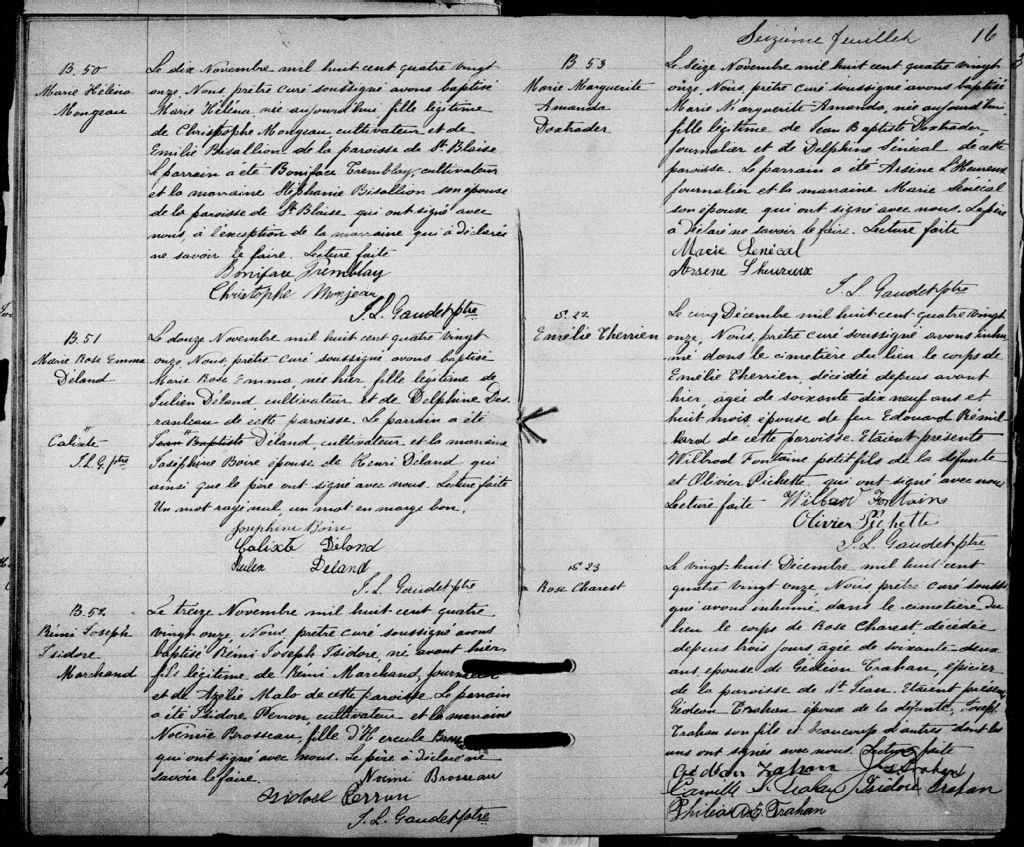 B. 50
Marie Hélina
Mongeau
Le dix Novembre mil huit cent quatre vingt
onze, Nous, prêtre curé soussigné avons baptisé
Marie Hélina, née aujourd'hui, fille légitime
de Christophe Mongeau, cultivateur et de
Emilie Bisallion de la paroisse de St. Blaise
Le parrain a été Boniface Tremblay, cultivateur
et la marraine Stéphanie Bisallion son épouse
de la paroisse de St. Blaise qui ont signé avec
nous, à l'exception de la marraine qui a déclaré
ne savoir le faire. Lecture faite
Boniface Tremblay
Christophe Monjeau
J. L. Gaudet ptre
B. 51
Marie Rose Emma
Déland
Calixte
J. L. G. ptre
Le douze Novembre mil huit cent quatre vingt
onze, Nous, prêtre curé soussigné avons baptisé
Marie Rose Emma, née hier, fille légitime de
Julien Déland cultivateur et de Delphine Des
ranleau de cette paroisse. Le parrain a été
Jean Baptiste Déland, cultivateur, et la marraine
Joséphine Boire épouse de Henri Déland qui
ainsi que le père ont signé avec nous. Lecture faite
Un mot rayé nul, un mot en marge bon.
Josephine Boire
Calixte Déland
Deland
J. L. Gaudet ptre
B. 52
Rémi Joseph
Isidore
Marchand
Le treize Novembre mil huit cent quatre
vingt onze, Nous, prêtre curé soussigné avons
baptisé Rémi Joseph Isidore, né avant hier
fils légitime de Rémi Marchand,
et de Azélie Malo de cette paroisse. Le parrain
a été Isidore Perron, cultivateur et la marraine
Noëmie Brosseau, fille d'Hercule
qui ont signé avec nous. Le père a déclaré ne
savoir le faire. Noëmi Brosseau
Isidore Perron
J. L. Gaudet ptre
Seizième feuillet 16
B. 53
Marie Marguerite
Amanda
Doxtrader
Le seize Novembre mil huit cent quatre vingt
onze, Nous, prêtre curé soussigné avons baptisé
Marie Marguerite Amanda, née aujourd'hui,
fille légitime de Jean Baptiste Doxtrader,
journalier et de Delphine Sénécal de cette
paroisse. Le parrain a été Arsène L'Heureux
journalier et la marraine Marie Sénécal
son épouse qui ont signé avec nous. Le père
a déclaré ne savoir le faire. Lecture faite
Marie Senécal
Arsène Lheureux
J. L. Gaudet ptre
S. 22
Emélie Therrien
Le cinq Décembre mil huit cent quatre vingt
onze, Nous, prêtre curé soussigné avons inhu
mé dans le cimetière du lieu le corps de
Emélie Therrien, décédée depuis avant
hier agée de soixante dix neuf ans et
huit mois épouse de feu Edouard Rémil
lard de cette paroisse. Etaient présents
Wilbrod Fontaine petit fils de la défunte
et Olivier Pichette qui ont signé avec nous
Lecture faite Wilbrod Fontaine
Olivier Pichette
J. L. Gaudet ptre
S. 23
Rose Charest
Le vingt huit Décembre mil huit cent
quatre vingt onze, Nous, prêtre curé sous
gné avons inhumé dans le cimetière du
lieu le corps de Rose Charest décédée
depuis trois jours, agée de soixante-deux
ans épouse de Gédéon Trahan, épicier
de la paroisse de St. Jean. Etaient présents
Gédéon Trahan époux de la défunte, Joseph
Trahan son fils et beaucoup d'autres dont les
uns ont signés avec nous. Lecture faite
Gédéon Trahan Jos Trahan
Camille Trahan Isidore Trahan
Trahan